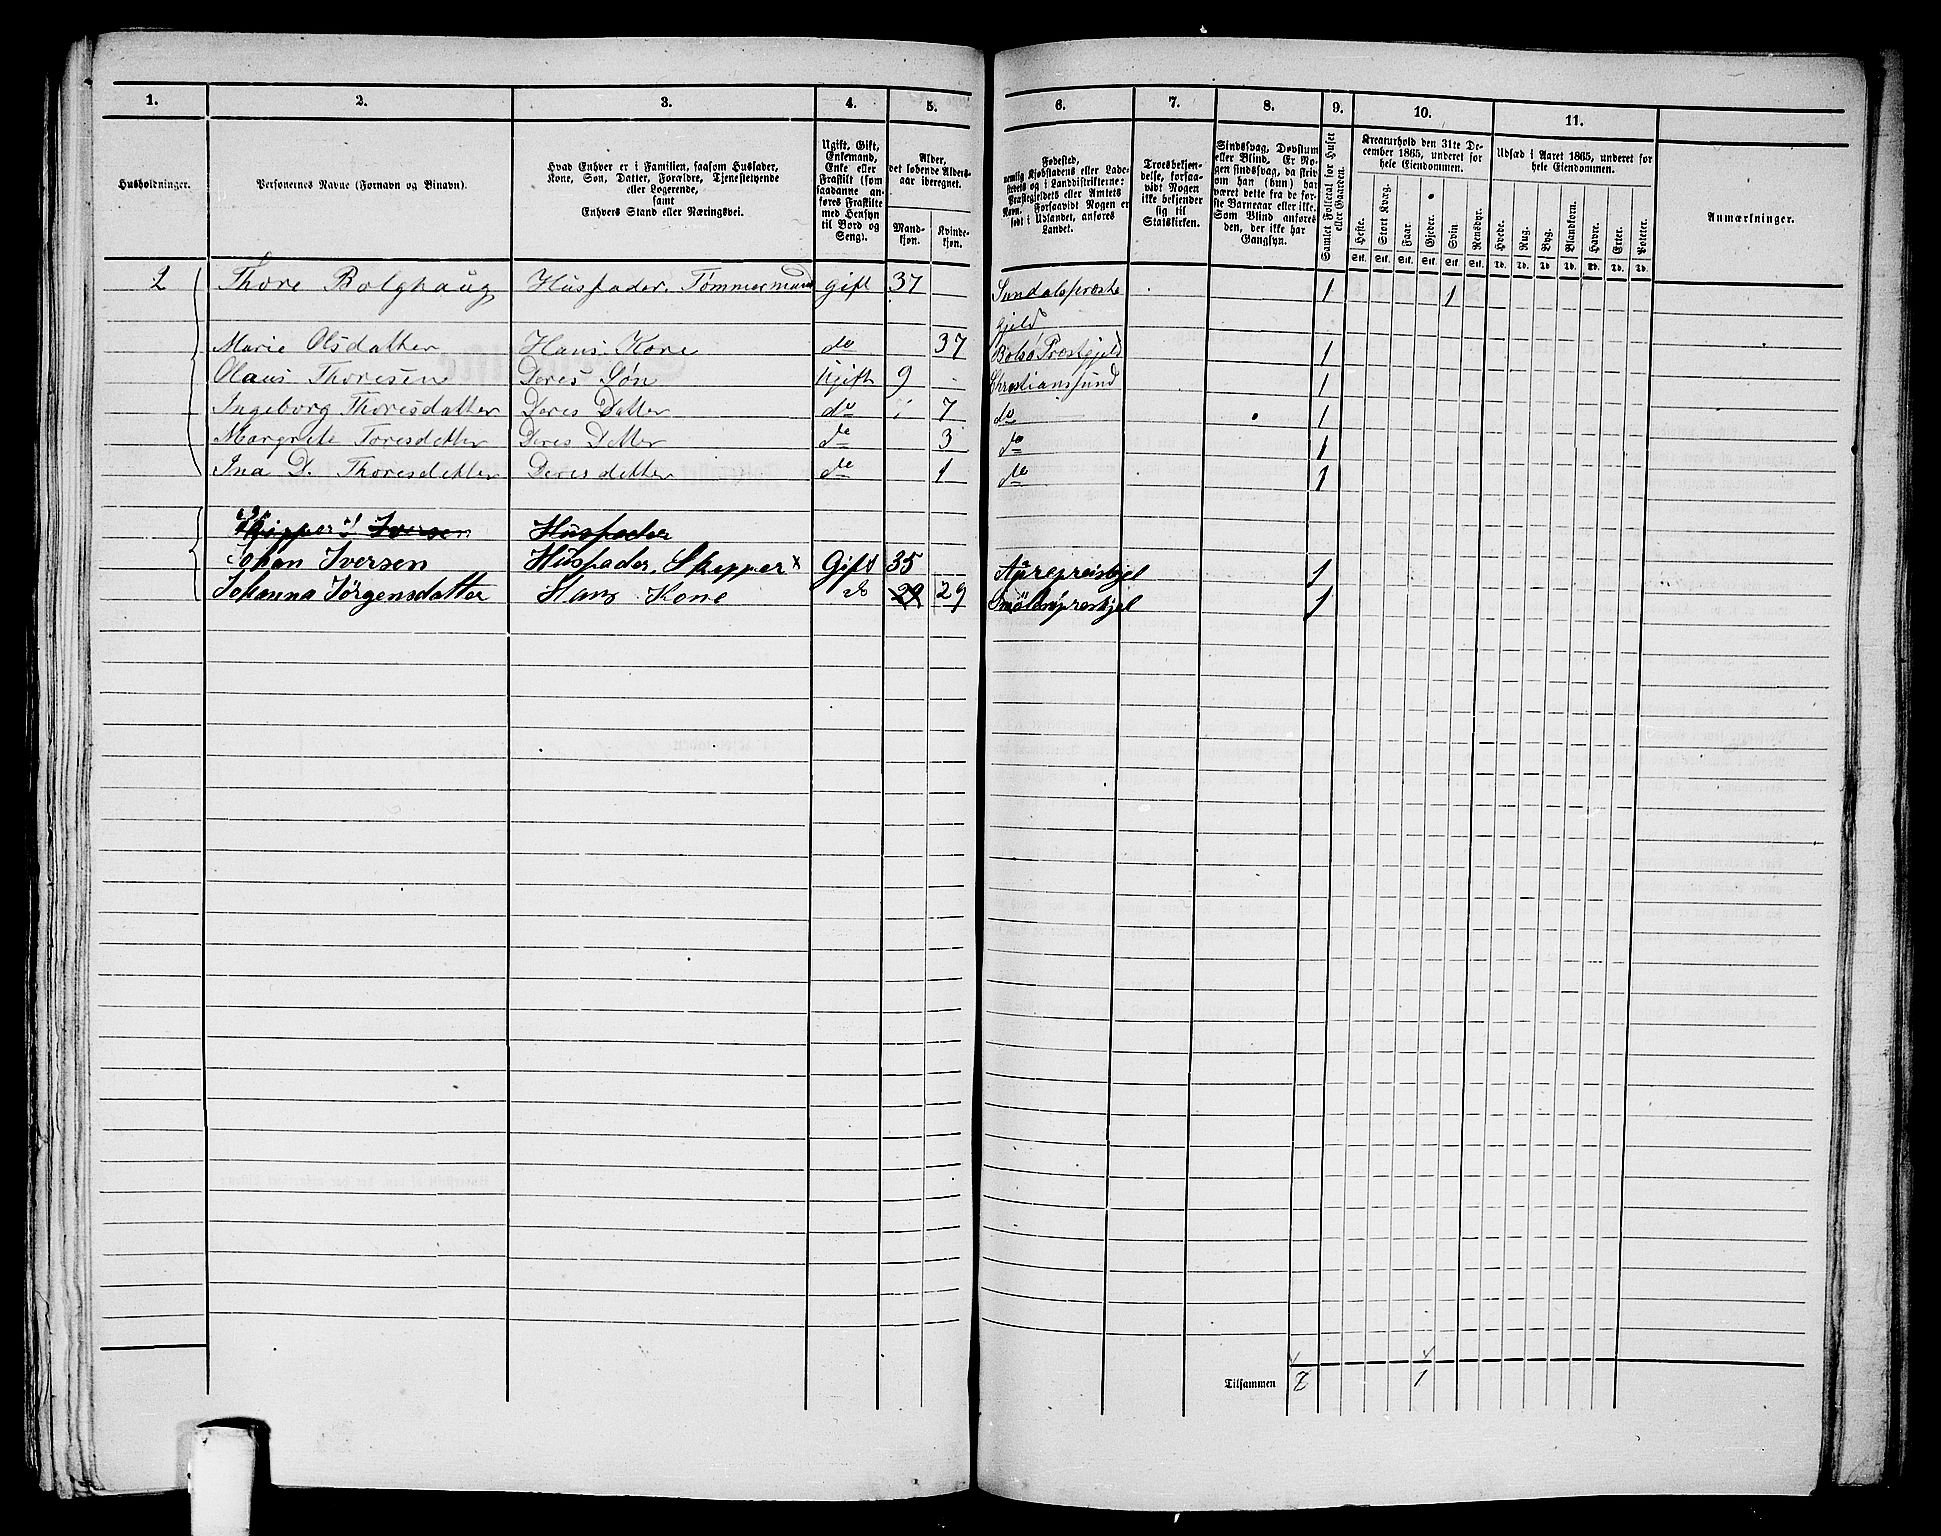 1. 2. 3. 4. 5. 6. 7. 8. 9. 10. 11.
Husholdninger.
Personernes Navne (Fornavn og Binavn).
Hvad Enhver er i Familien, saasom Husfader,
Kone, Søn, Datter, Forældre, Tjenestetyende
eller Logerende,
samt
Enhvers Stand eller Næringsvei.
Ugift, Gift,
Enkemand,
Enke eller
Fraskilt (som
saadanne an-
føres Fraskilte
med Hensyn
til Bord og
Seng).
Alder,
det løbende Alders-
aar iberegnet.
Mand-
kjøn.
Kvinde-
kjøn.
Fødested,
nemlig Kjøbstadens eller Lade-
stedets og i Landdistrikterne:
Præstegjeldets eller Amtets
Navn. Forsaavidt Nogen er
født i Udlandet, anføres
Landet.
Troesbekjen-
delse, forsaa-
vidt Nogen
ikke bekjender
sig til
Statskirken.
Sindssvag, Døvstum
eller Blind. Er No-
gen sindssvag, da skriv
om han (hun) har
været dette fra de før-
ste Barneaar eller ikke.
Som Blind anføres
den, der ikke har
Gangsyn.
Samlet Folketal for Huset
eller Gaarden.
Kreaturhold den 31te De-
cember 1865, underet for
hele Eiendommen.
Heste. Stort Kvæg. Faar. Gjeder. Svin. Rensdyr.
Stk. Stk. Stk. Stk. Stk. Stk.
Udsæd i Aaret 1865, underet for
hele Eiendommen.
Hvede. Rug. Byg. Blandkorn. Havre. Erter. Poteter.
Td. Td. Td. Td. Td. Td. Td.
Anmærkninger.
2 Thore Bolghaug Husfader. Tømmermand gift 37 Sundalspræste 1 1
gjeld
Marie Olsdatter Hans Kone do 37 Bolsø Prestgjeld 1
Olaus Thoresen Deres Søn Ugift 9 Christianssund 1
Ingeborg Thoresdatter Deres Datter do 7 do 1
Margrete Toresdatter Deres Datter do 3 do 1
Ina D. Thoresdatter Deres datter do 1 do 1
Skipper Iversen Husfader
Johan Iversen Husfader, Skipper x Gift 35 Aurepreisgjel 1
Johanna Jørgensdatter Hans Kone do 29 29 Smölenpreskjel 1
Tilsammen 1